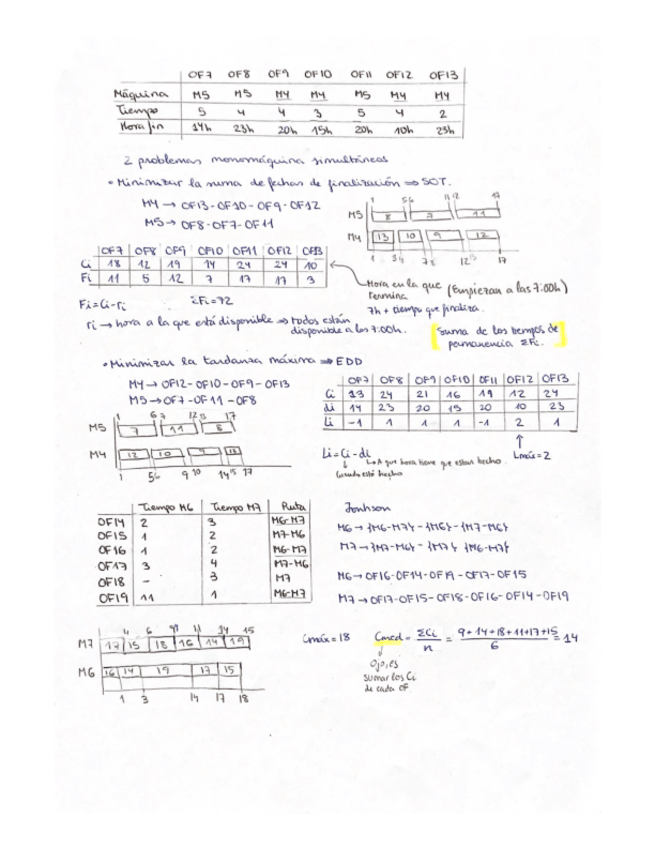 OF7 OF8 OF9 OF10 OF11 OF12 OF13
Máquina M5 M5 M4 M4 M5 M4 M4
Tiempo 5 4 4 3 5 4 2
Hora fin 14h 23h 20h 15h 20h 10h 23h
2 problemas monomáquina simultáneos
• Minimizar la suma de fechas de finalización ⇒ SOT.
M4 → OF13-OF10-OF9-OF12
M5 → OF8-OF7-OF11
M5 8 7 11
M4 13 10 9 12
17
OF7 OF8 OF9 OF10 OF11 OF12 OF13
Ci 18 12 19 14 24 24 10
Fi 11 5 12 7 17 17 3
Hora en la que termina (Empiezan a las 7:00h)
7h + tiempo que finaliza.
Fi=Ci-ri ΣFi=72
ri → hora a la que está disponible ⇒ todos están disponible a las 7:00h.
[Suma de los tiempos de permanencia ΣFi.]
• Minimizar la tardanza máxima ⇒ EDD
M4 → OF12-OF10-OF9-OF13
M5 → OF7-OF11-OF8
OF7 OF8 OF9 OF10 OF11 OF12 OF13
Ci 13 24 21 16 19 12 24
di 14 23 20 15 20 10 23
Li -1 1 1 1 -1 2 1
1 6 7 12 13 17
M5 7 11 8
M4 12 10 9 13
1 5 6 9 10 14 15 17
Li=Ci-di
Lmáx=2
↳ A que hora tiene que estar hecho.
Cuando está hecho
Tiempo M6 Tiempo M7 Ruta
OF14 2 3 M6-M7
OF15 1 2 M7-M6
OF16 1 2 M6-M7
OF17 3 4 M7-M6
OF18 - 3 M7
OF19 11 1 M6-M7
Jonhson
M6 → {M6-M7} - {M6} - {M7-M6}
M7 → {M7-M6} - {M7} {M6-M7}
M6 → OF16-OF14-OF19-OF17-OF15
M7 → OF17-OF15-OF18-OF16-OF14-OF19
4 6 9 11 14 15
M7 17 15 18 16 14 19
M6 16 14 19 17 15
1 3 14 17 18
Cmáx=18 Cmed= ΣCi/n = 9+14+18+11+17+15/6 = 14
Ojo, es
sumar los Ci
de cada OF